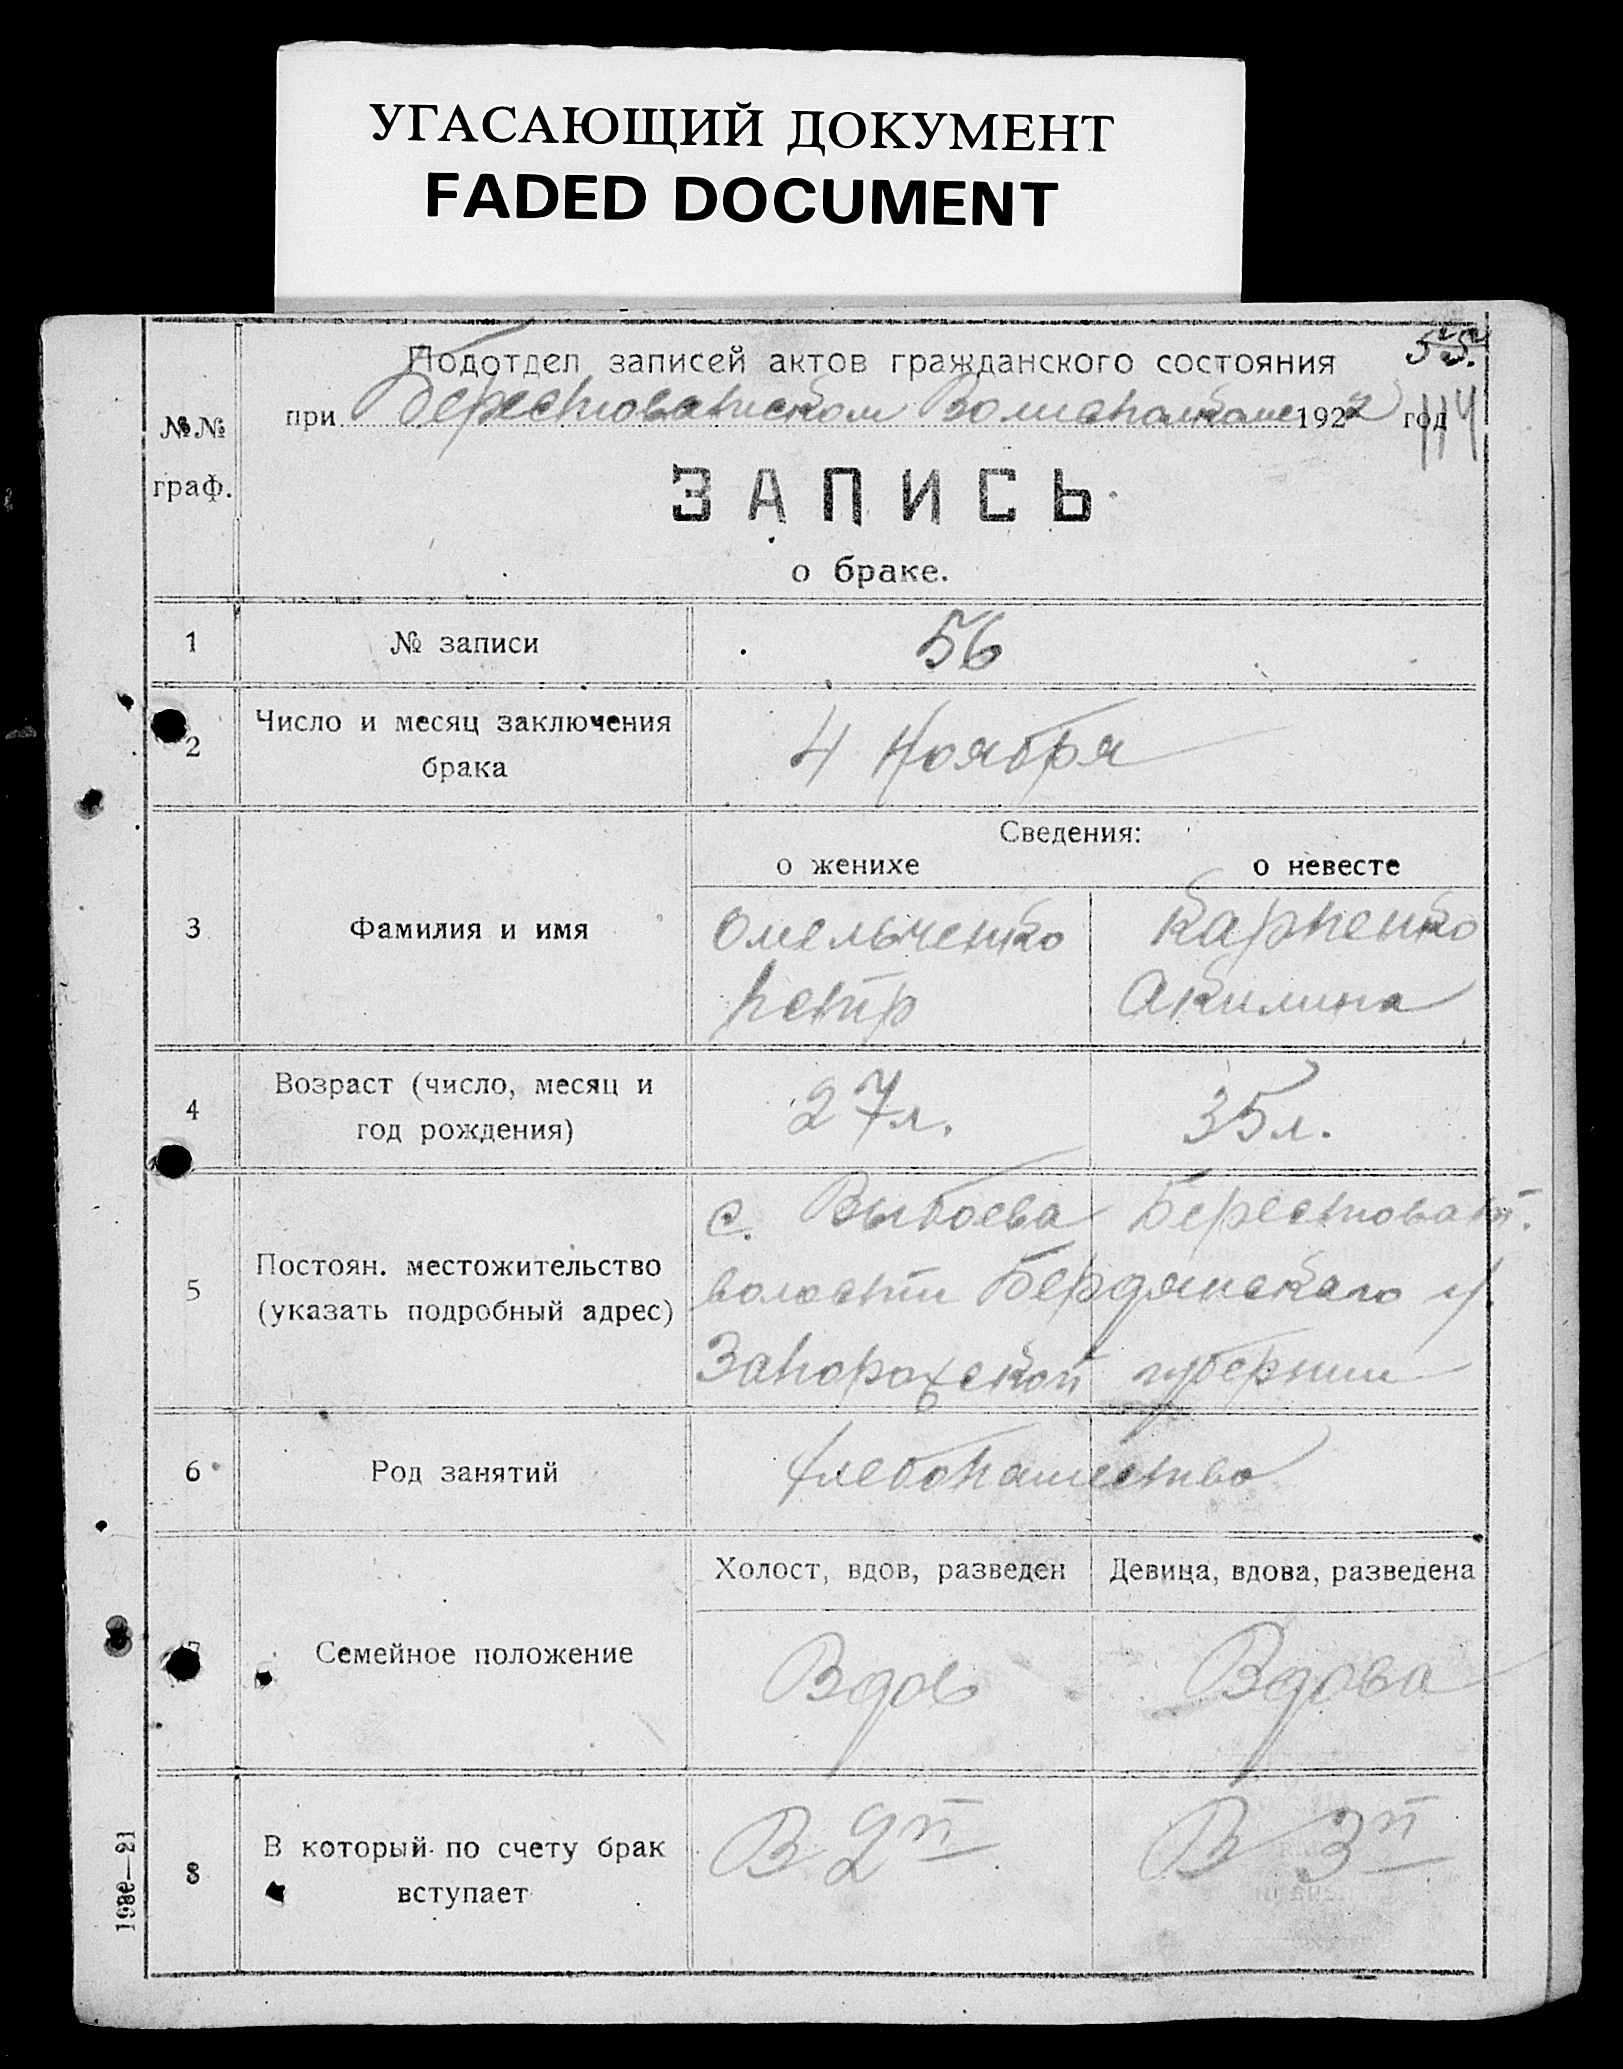 УГАСАЮЩИЙ ДОКУМЕНТ
FADED DOCUMENT
55.
Подотдел записей актов гражданского состояния
при Берестоватском 1922 год
114
№№
граф.
ЗАПИСЬ
о браке.
1 № записи 56
2 Число и месяц заключения
брака
4 Ноября
Сведения:
о женихе о невесте
3 Фамилия и имя
Омельченко Карпенко
Петр Акилина
4 Возраст (число, месяц и
год рождения)
27 л. 35 л.
5 Постоян. местожительство
(указать подробный адрес)
с. Берестоват.
волости Бердянского у.
Запорожской губернии
6 Род занятий
хлебопашество
Холост, вдов, разведен Девица, вдова, разведена
7 Семейное положение
Вдов Вдова
8 В который по счету брак
вступает
В 2й В 3й